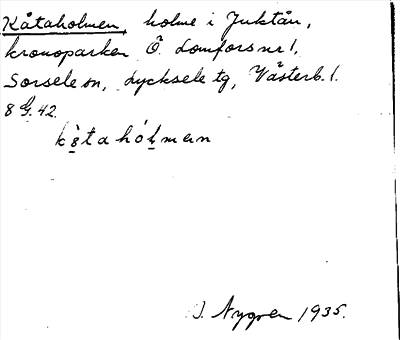 Kåtaholmen, holme i Juktån,
kronoparken Ö. Lomfors nr 1,
Sorsele sn, Lycksele tg, Västerb. l.
8 G. 42.
kȣtahólmən
J. Nygren 1935.